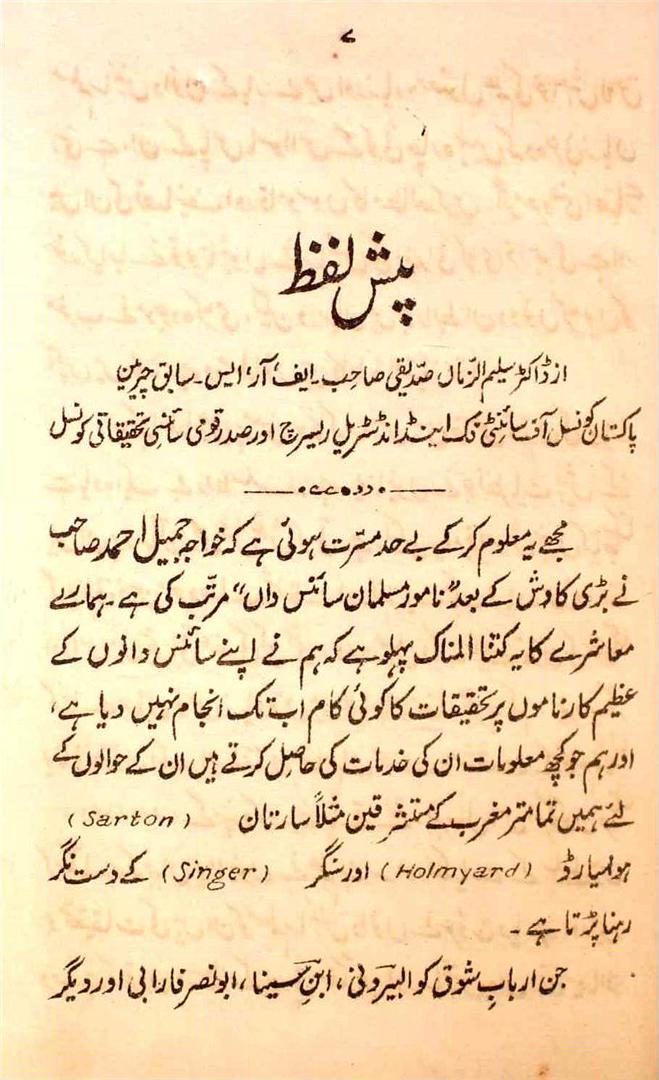 ۷
پیش لفظ
از ڈاکٹر سلیم الزماں صدیقی صاحب۔ ایف، آر، ایس۔ سابق چیرمین
پاکستان کونسل آف سائنٹی فک اینڈ انڈسٹریل ریسرچ اور صدر قومی سائنسی تحقیقاتی کونسل
مجھے یہ معلوم کرکے بے حد مسرّت ہوئی ہے کہ خواجہ جمیل احمد صاحب
نے بڑی کاوش کے بعد "نامور مسلمان سائنس داں" مرتّب کی ہے۔ ہمارے
معاشرے کا یہ کتنا المناک پہلو ہے کہ ہم نے اپنے سائنس دانوں کے
عظیم کارناموں پر تحقیقات کا کوئی کام اب تک انجام نہیں دیا ہے،
اور ہم جو کچھ معلومات ان کی خدمات کی حاصل کرتے ہیں ان کے حوالوں کے
لئے ہمیں تمامتر مغرب کے مستشرقین مثلاً سارٹان (Sarton)
ہولمیارڈ (Holmyard) اور سنگر (Singer) کے دست نگر
رہنا پڑتا ہے۔
جن اربابِ شوق کو البیرونی، ابنِ سینا، ابونصر فارابی اور دیگر